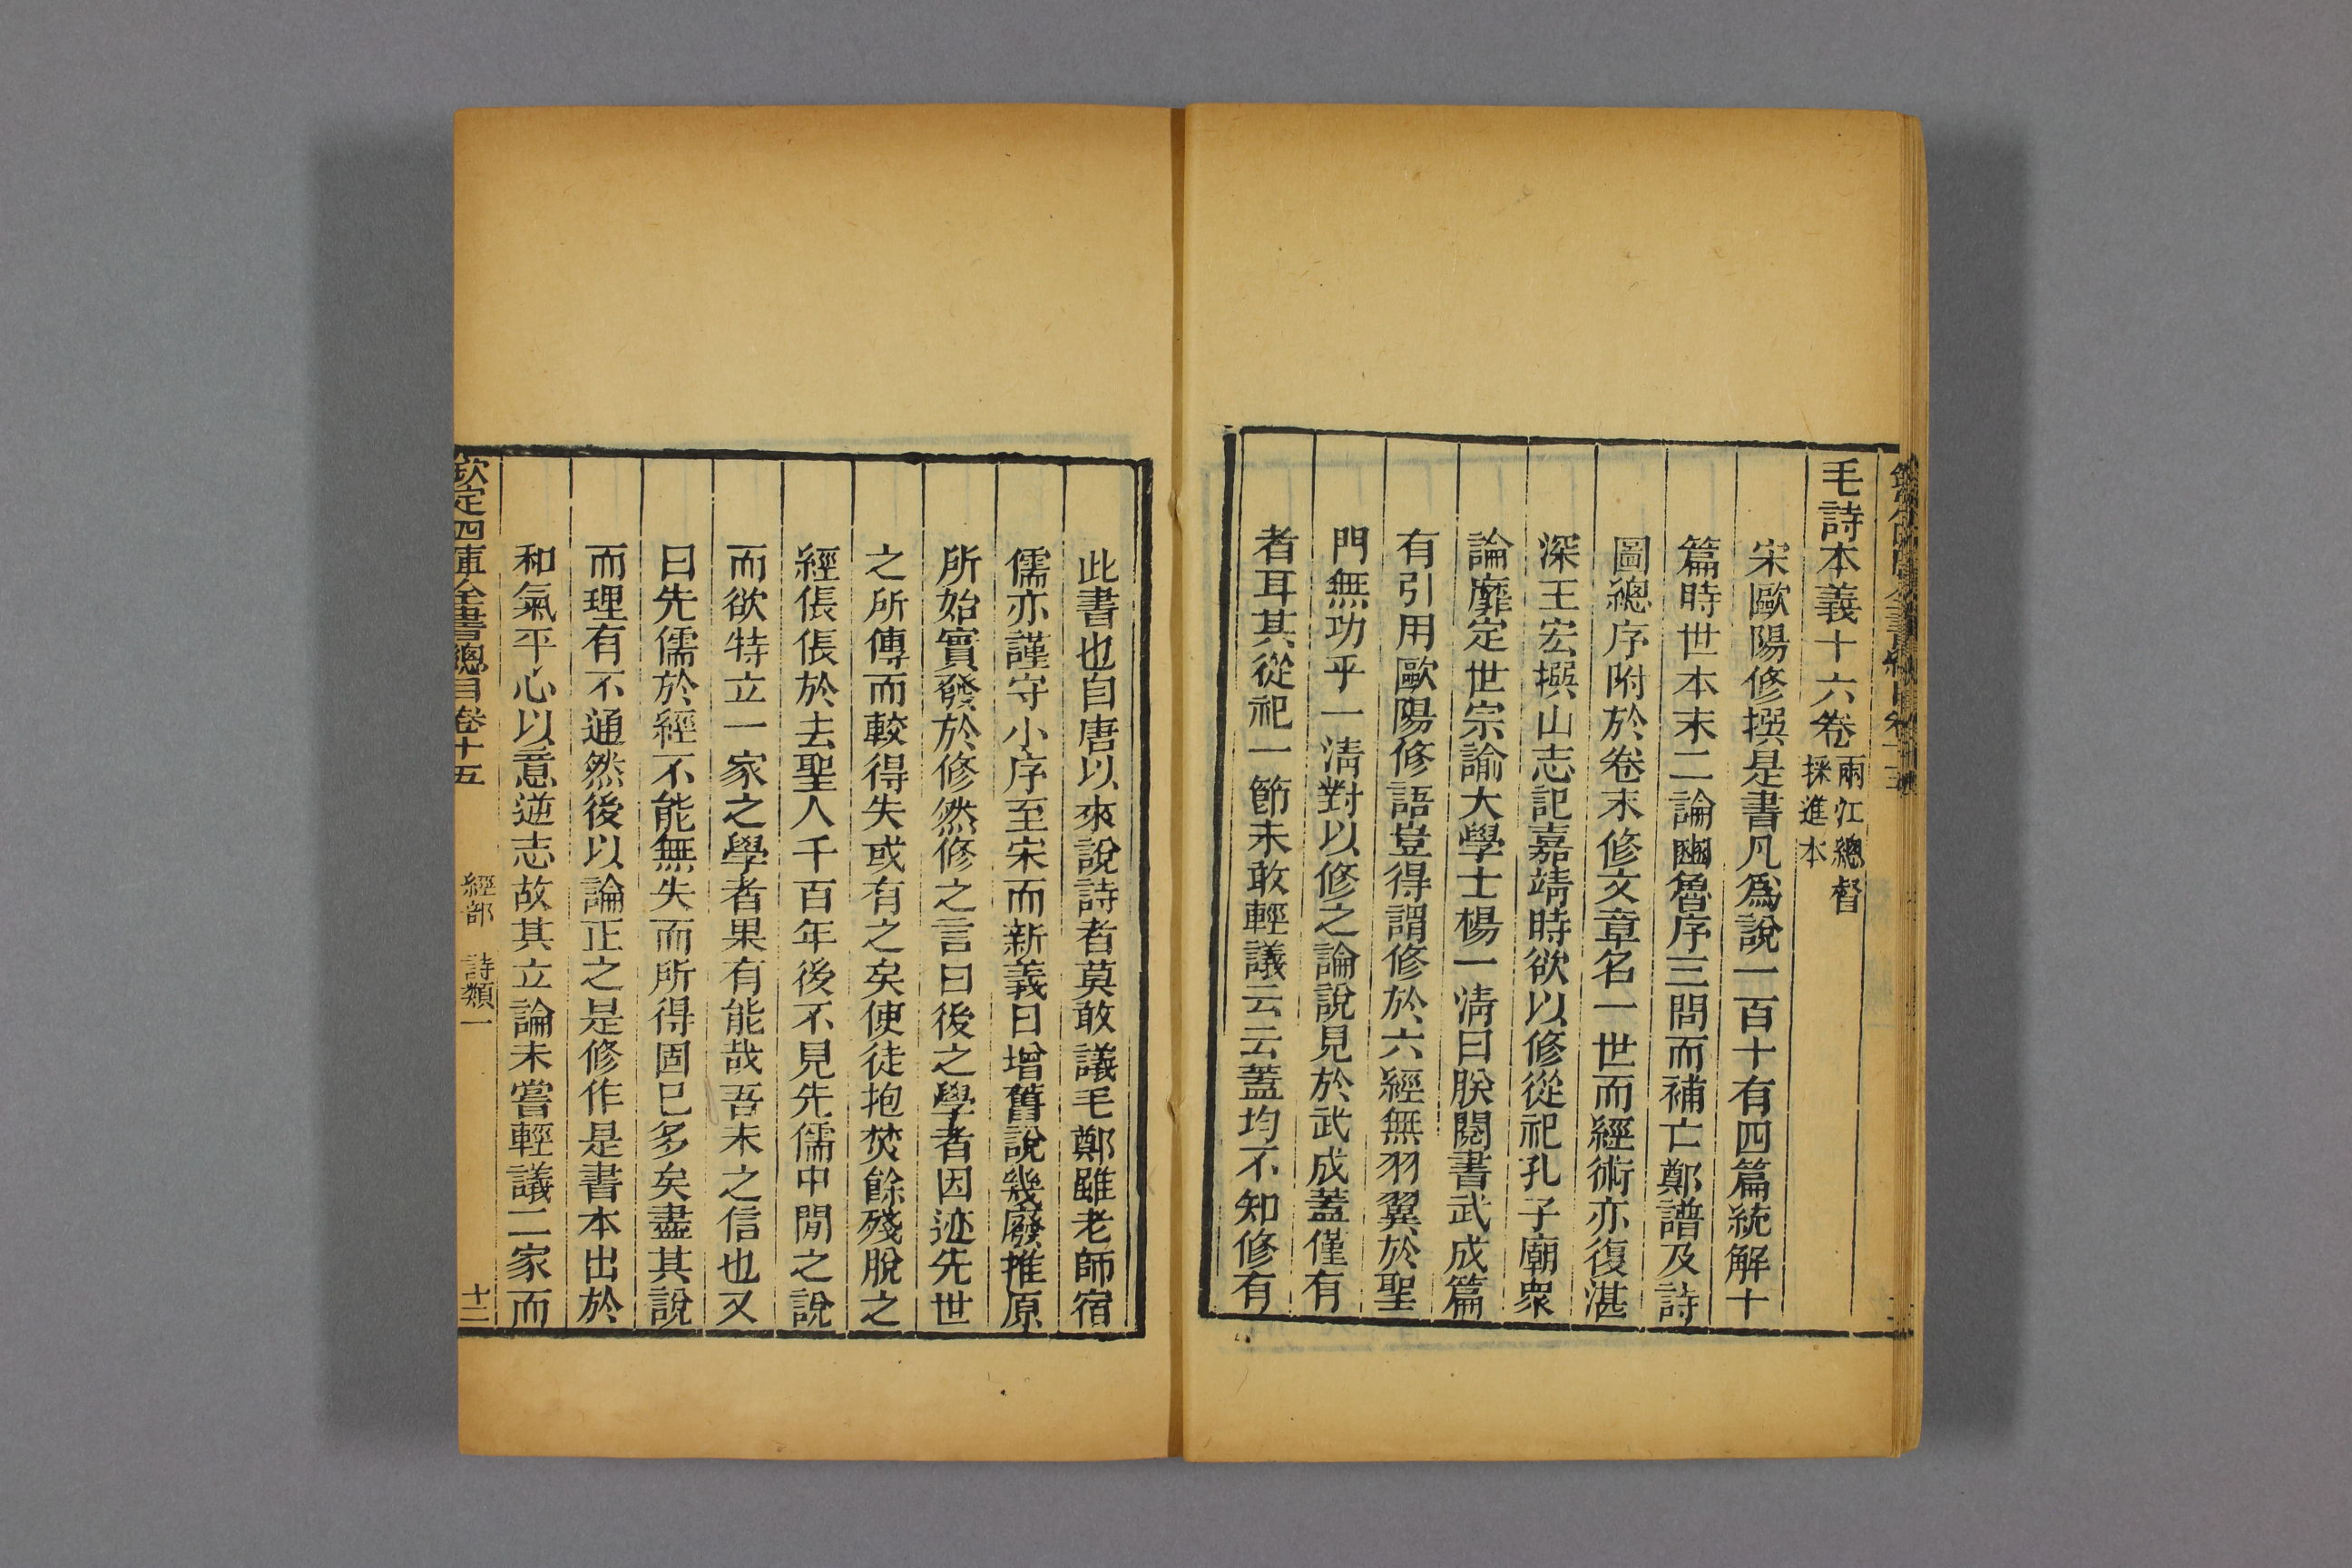 毛詩本義十六卷
兩江總督
採進本
宋歐陽修撰是書凡爲說一百十有四篇統解十
篇時世本末二論豳魯序三問而補亡鄭譜及詩
圖總序附於卷末修文章名一世而經術亦復湛
深王宏撰山志記嘉靖時欲以修從祀孔子廟衆
論靡定世宗諭大學士楊一淸曰朕閱書武成篇
有引用歐陽修語豈得謂修於六經無羽翼於聖
門無功乎一淸對以修之論說見於武成蓋僅有
者耳其從祀一節未敢輕議云云蓋均不知修有
此書也自唐以來說詩者莫敢議毛鄭雖老師宿
儒亦謹守小序至宋而新義日增舊說幾廢推原
所始實發於修然修之言曰後之學者因迹先世
之所傳而較得失或有之矣使徒抱焚餘殘脫之
經倀倀於去聖人千百年後不見先儒中閒之說
而欲特立一家之學者果有能哉吾未之信也又
曰先儒於經不能無失而所得固已多矣盡其說
而理有不通然後以論正之是修作是書本出於
和氣平心以意逆志故其立論未嘗輕議二家而
欽定四庫全書總目卷十五
經部 詩類一
十二